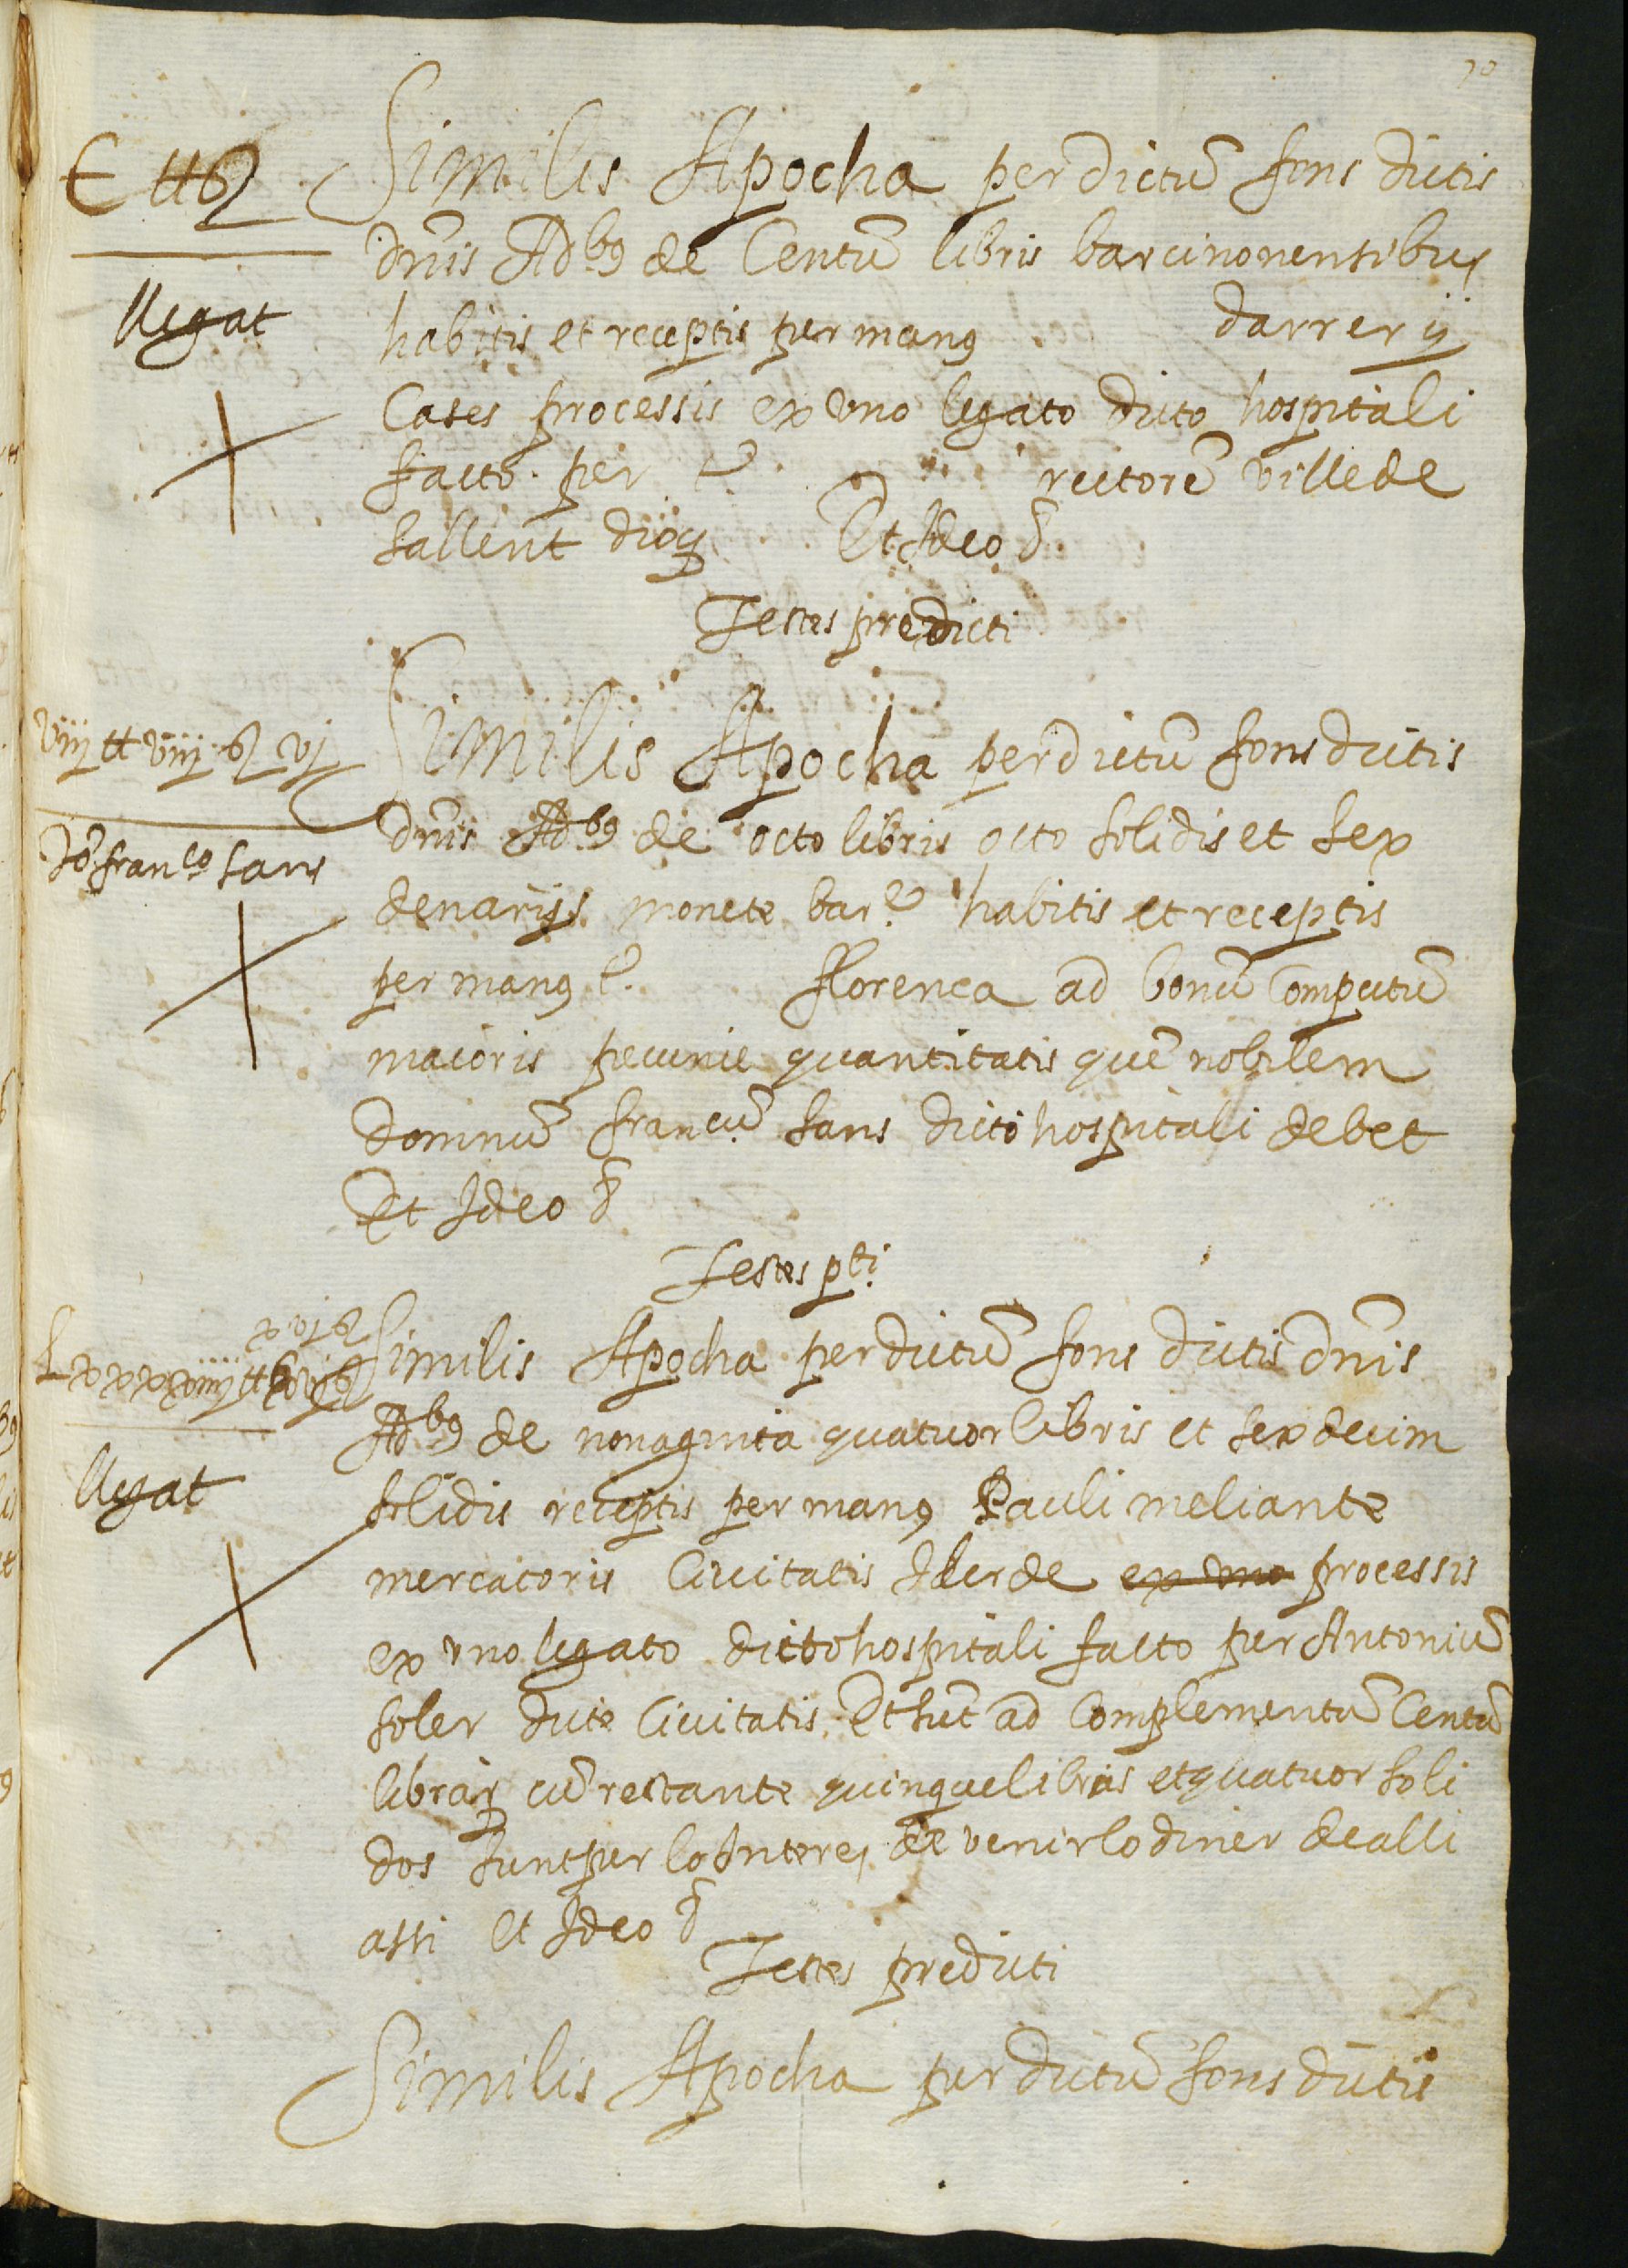 70
C ʉ ß
Similis Apocha per dictũ fons dictis
dñis Adbꝰ de Centũ libris barcinonensibus
llegat
habitis et receptis per manꝰ darrer ij
Cases processis ex vno legato dicto hospitali
facto per rectorẽ ville de
Sallent Et Ideo
Testes predicti
viij ʉ viij ß vj
Similis Apocha per dictũ fons dictis
dñis Adbꝰ de octo libris octo solidis et sex
Jõ franco sans
denarijs monete bare habitis et receptis
per manꝰ florença ad bonũ Computũ
maioris pecunie quantitatis quẽ nobilem
Domnũ francũ sans dicto hospitali debet
Et Ideo
Testes pti
xvj ß
Lxxxxiiij ʉ xvj ß
Similis Apocha per dictũ fons dictis dñis
Adbꝰ de nonaginta quatuor libris et sexdecim
llegat
solidis receptis per manꝰ Pauli meliante
mercatoris Ciuitatis Ilerde ex vno processis
ex vno legato dicto hospitali facto per Antoniũ
soler dicte Ciuitatis Et sũt ad Complementũ Centũ
librar cũ restante quinque libras et quatuor soli
dos sunt per lo Interes de venir lo diner de alli
assi et Ideo
Testes predicti
Similis Apocha per dictũ fons dictis